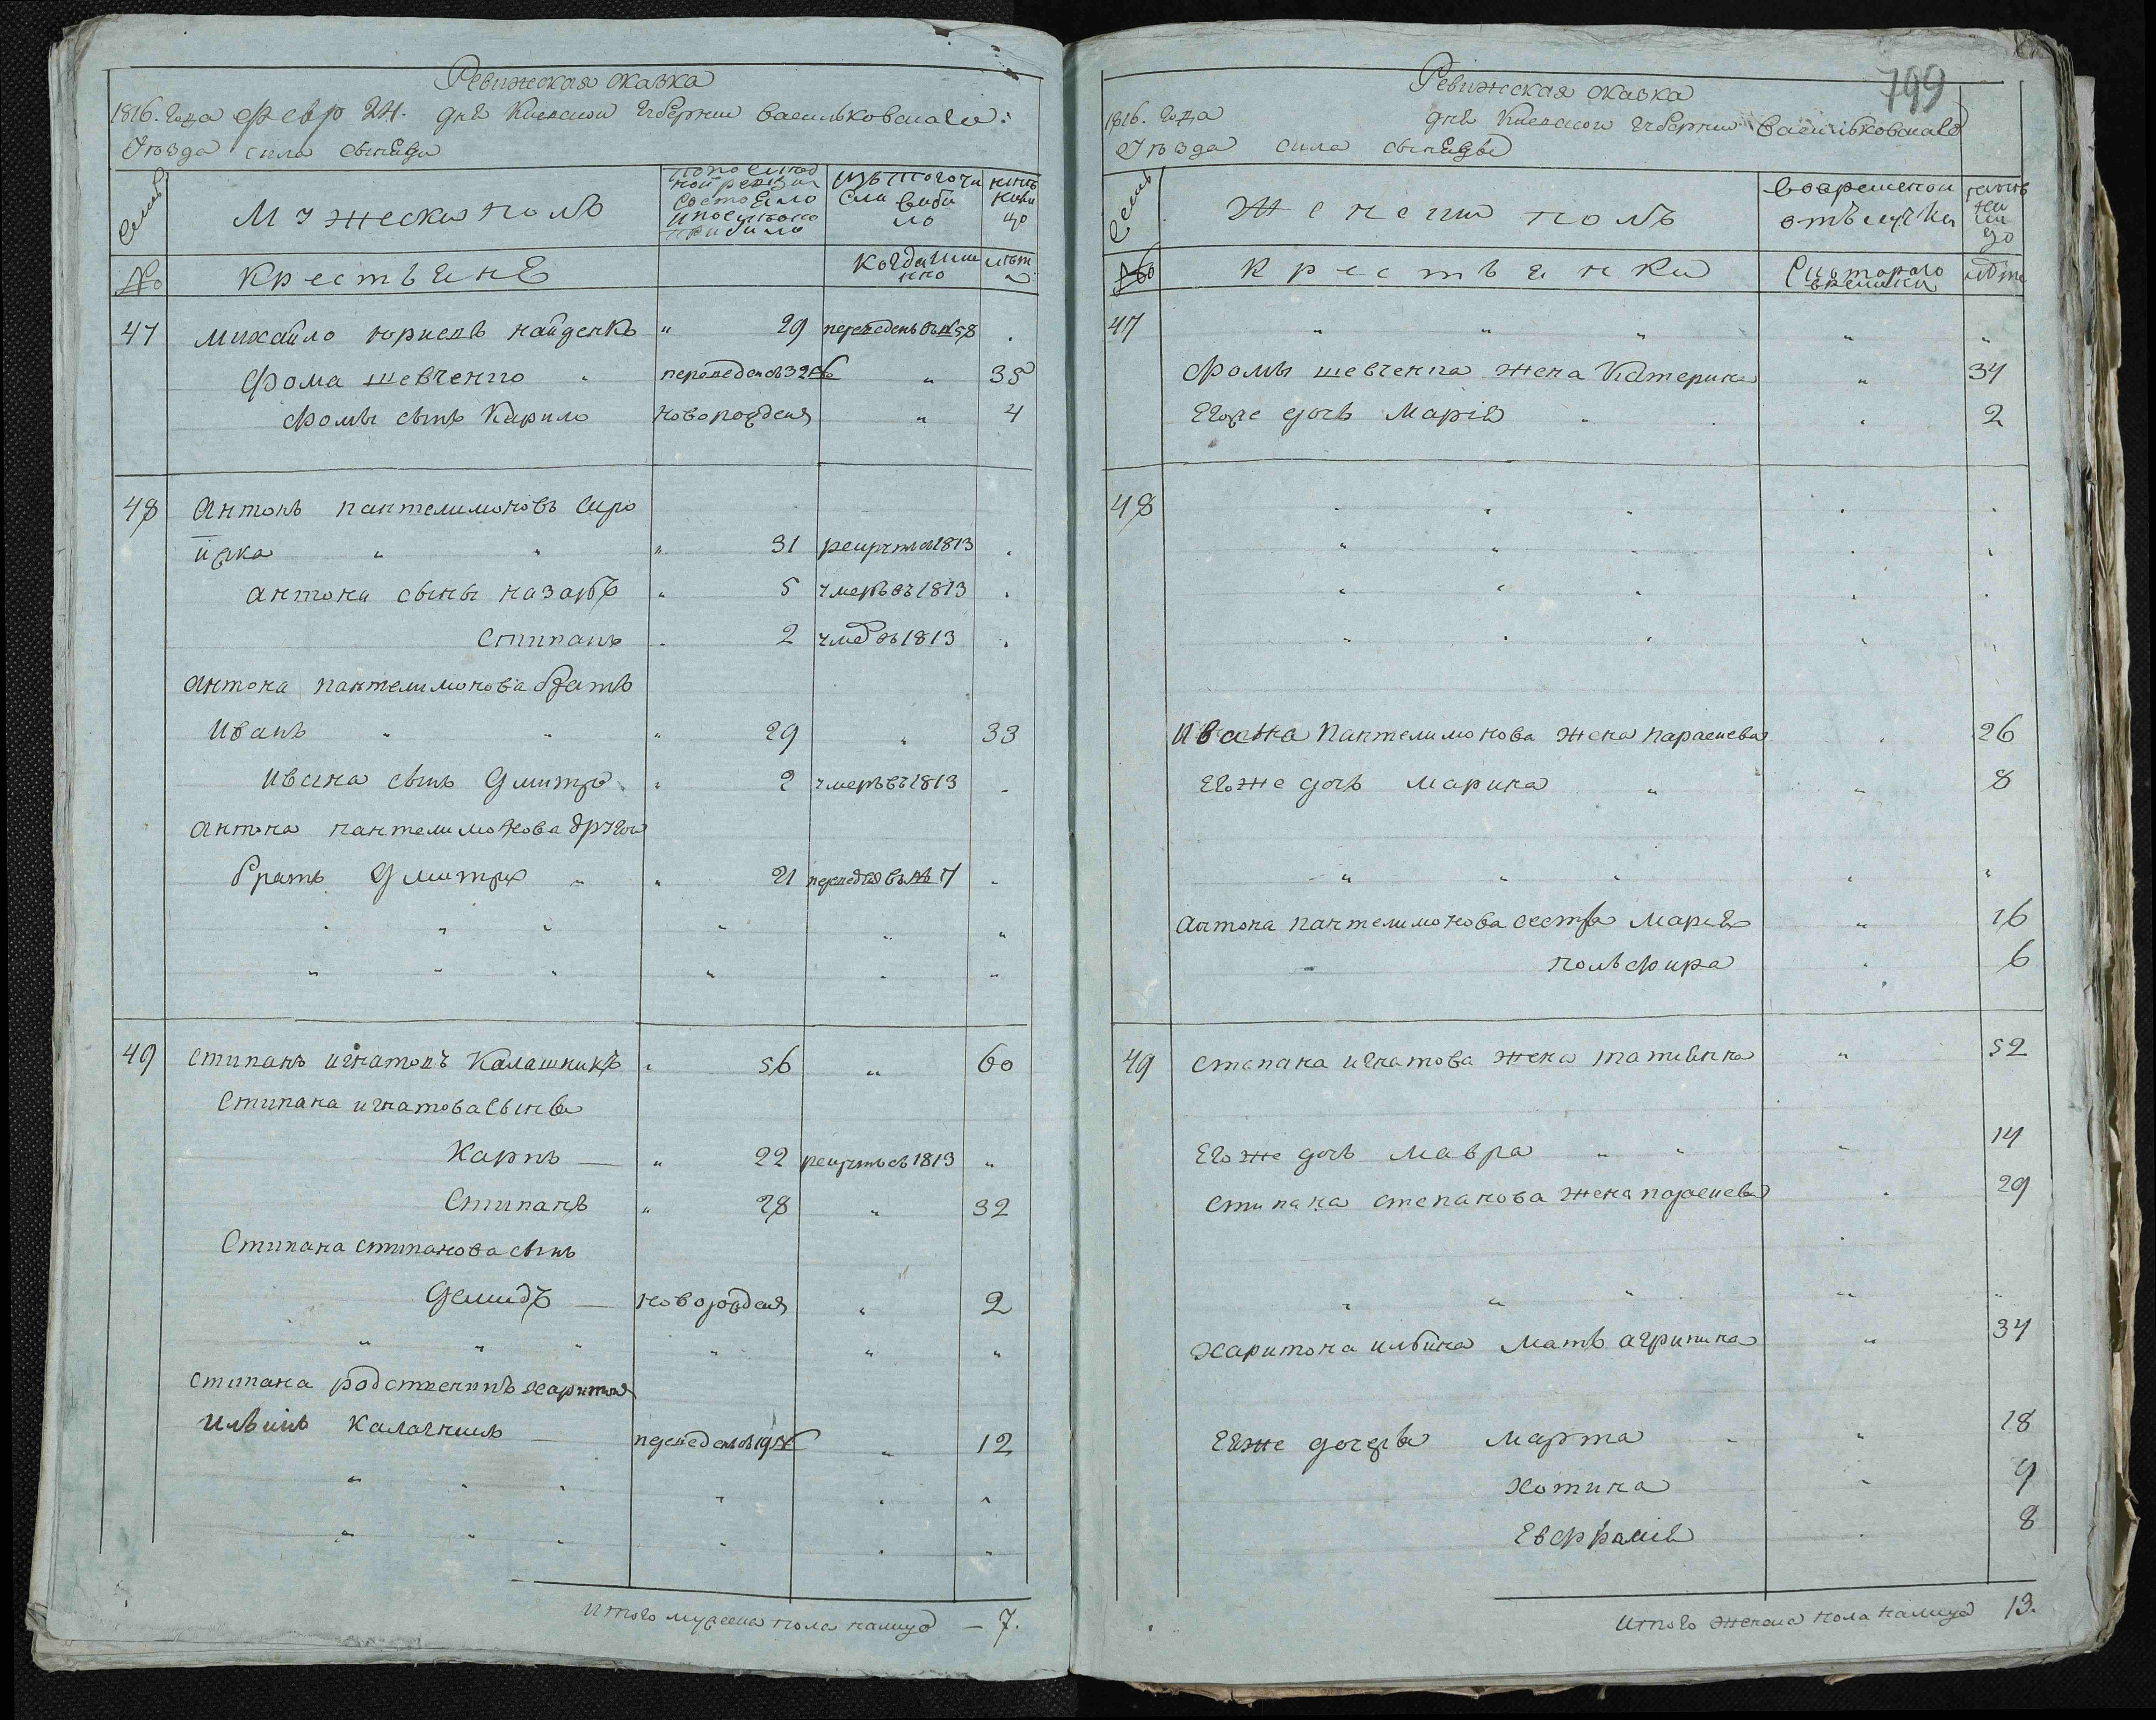 Ревижская сказка
1816. года Февр 24. дня Киевской Губернии васильковскаго
Уѣзда села
Семьи
Мужески полъ
по послѣдней ревизіи состояло и послѣ того прибыло
изъ того числа выбыло
нынѣ на лицо
№
крестьяне
когда именно
лѣта
47 михайло юрьевъ найденко " 29 переведенъ въ № 58
Фома шевченко переведенъ съ 32 № " 35
Фомы сынъ Кирило новорожденъ " 4
48 Антонъ пантелимоновъ
" " " 31 рекрутъ въ 1813
антона сыны назаръ " 5 умеръ въ 1813
Стипанъ 2 умеръ въ 1813
Антона пантелимонова братъ
Иванъ " " " 29 " 33
ивана сынъ Дмитро " 2 умеръ въ 1813
антона пантелимонова другой
братъ Дмитро " " 21 переведенъ въ № 7
49 Стипанъ игнатовъ Калашникъ " 56 " 60
Стипана игнатова сыновья
Карпъ — " 22 рекрутъ въ 1813 "
Стипанъ " 28 " 32
Стипана стипанова сынъ
Демидъ — новорожденъ " 2
стипана родственникъ харитонъ
ильинъ калачникъ — переведенъ съ 19 № " 12
итого мужеска пола налицо — 7.
799
Ревижская сказка
1816. года дня Киевской Губернии васильковскаго
Уѣзда села
Семьи
Женски полъ
во временной отлучкѣ
нынѣ на лицо
№
крестьянки
Съ котораго времени
лѣта
47 " " " " "
Фомы шевченка жена Катерина " 34
Егоже дочь Марія 2
48
Ивана Пантелимонова жена параскева 26
Егоже дочь марина " " 8
антона пантелимонова сестра Марья " 16
польфира 6
49 степана игнатова жена татияна " 52
Егоже дочь мавра " " " 14
стипана степанова жена параскева 29
харитона ильина мать агрипина " 34
Еяже дочерья марта " 18
хотина 9
Евфрасия 8
итого женска пола налицо 13.